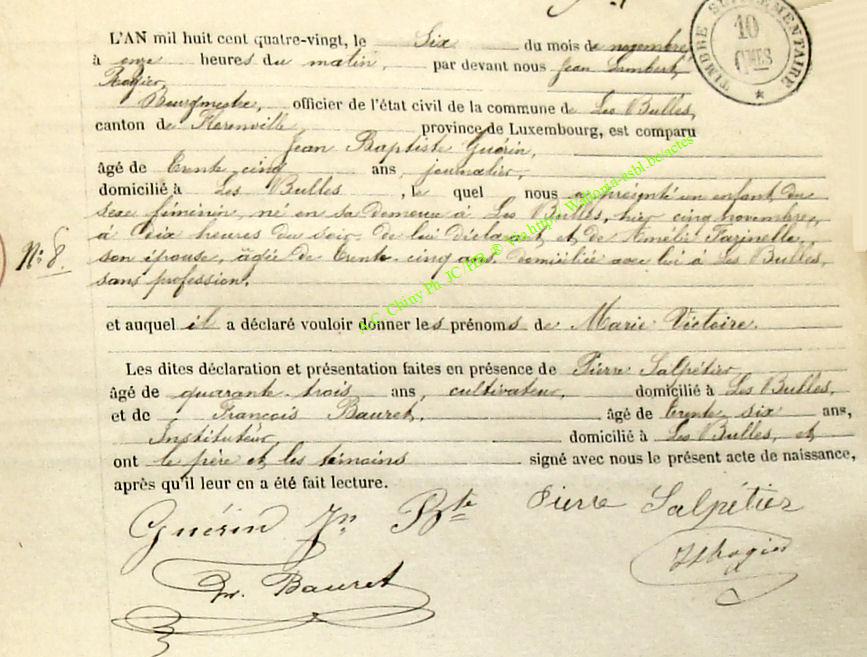 TIMBRE SUPPLÉMENTAIRE
10
CMES
L'AN mil huit cent quatre-vingt, le Six du mois de novembre,
à onze heures du matin, par devant nous Jean Lambert,
Rogier,
Bourgmestre, officier de l'état civil de la commune de Les Bulles,
canton de Florenville, province de Luxembourg, est comparu
Jean Baptiste Guérin,
âgé de trente cinq ans, journalier,
domicilié à Les Bulles, le quel nous a présenté un enfant du
sexe féminin, né en sa demeure à Les Bulles, hier cinq novembre,
à dix heures du soir, de lui déclarant et de Amélie Fazinelle,
son épouse, âgée de trente-cinq ans, domiciliée avec lui à Les Bulles,
sans profession,
N° 8.
et auquel il a déclaré vouloir donner les prénoms de Marie Victoire.
Les dites déclaration et présentation faites en présence de Pierre Salpétier,
âgé de quarante-trois ans, cultivateur, domicilié à Les Bulles,
et de François Bauret, âgé de trente six ans,
Instituteur, domicilié à Les Bulles, et
ont le père et les témoins signé avec nous le présent acte de naissance,
après qu'il leur en a été fait lecture.
Guérin Jn Bte Pierre Salpétier
Fr. Bauret